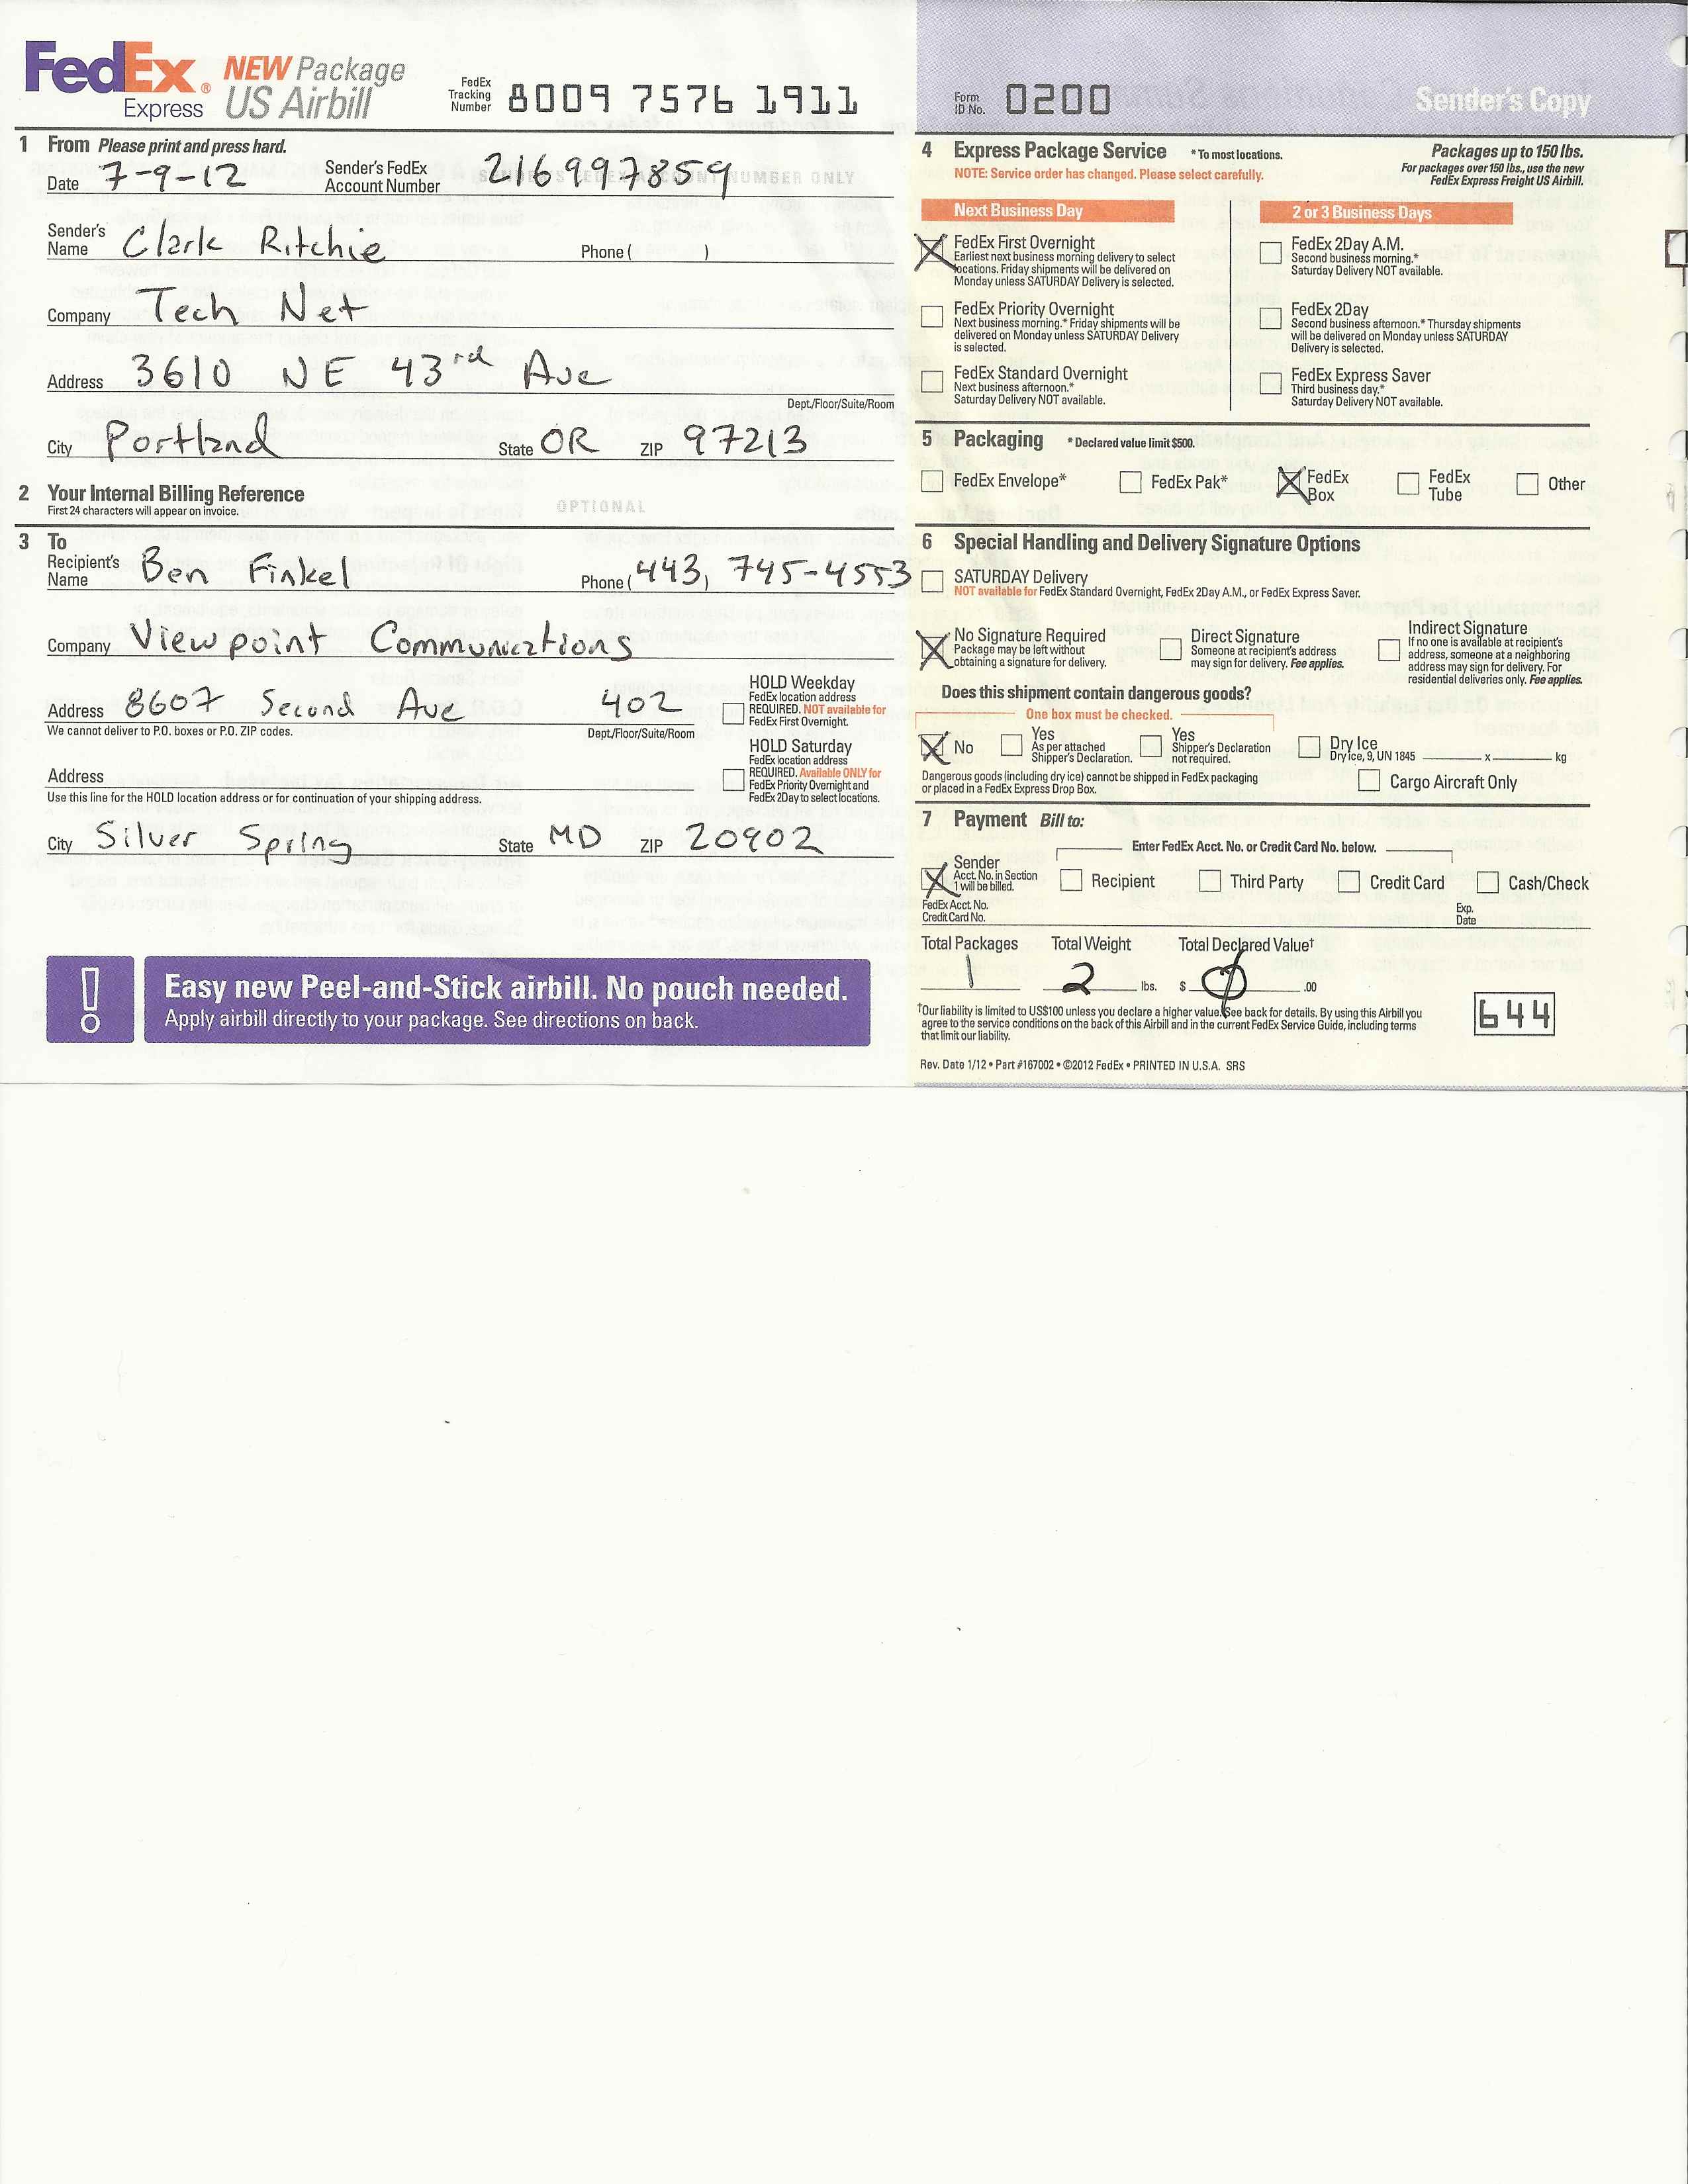 FedEx® Express
NEW Package
US Airbill
FedEx Tracking Number 8009 7576 1911
Form ID No. 0200
Sender's Copy
1 From Please print and press hard.
Date 7-9-12 Sender's FedEx Account Number 216997859
SENDER'S FEDEX ACCOUNT NUMBER ONLY
Sender's Name Clark Ritchie Phone ( )
Company Tech Net
Address 3610 NE 43rd Ave
Dept./Floor/Suite/Room
City Portland State OR ZIP 97213
2 Your Internal Billing Reference
First 24 characters will appear on invoice.
OPTIONAL
3 To
Recipient's Name Ben Finkel Phone (443) 745-4553
Company Viewpoint Communications
Address 8607 Second Ave 402
We cannot deliver to P.O. boxes or P.O. ZIP codes.
Dept./Floor/Suite/Room
HOLD Weekday
FedEx location address
REQUIRED. NOT available for
FedEx First Overnight.
HOLD Saturday
FedEx location address
REQUIRED. Available ONLY for
FedEx Priority Overnight and
FedEx 2Day to select locations.
Address
Use this line for the HOLD location address or for continuation of your shipping address.
City Silver Spring State MD ZIP 20902
Easy new Peel-and-Stick airbill. No pouch needed.
Apply airbill directly to your package. See directions on back.
4 Express Package Service * To most locations.
NOTE: Service order has changed. Please select carefully.
Packages up to 150 lbs.
For packages over 150 lbs., use the new
FedEx Express Freight US Airbill.
Next Business Day
FedEx First Overnight
Earliest next business morning delivery to select
locations. Friday shipments will be delivered on
Monday unless SATURDAY Delivery is selected.
FedEx Priority Overnight
Next business morning.* Friday shipments will be
delivered on Monday unless SATURDAY Delivery
is selected.
FedEx Standard Overnight
Next business afternoon.*
Saturday Delivery NOT available.
2 or 3 Business Days
FedEx 2Day A.M.
Second business morning.*
Saturday Delivery NOT available.
FedEx 2Day
Second business afternoon.* Thursday shipments
will be delivered on Monday unless SATURDAY
Delivery is selected.
FedEx Express Saver
Third business day.*
Saturday Delivery NOT available.
5 Packaging * Declared value limit $500.
FedEx Envelope* FedEx Pak* FedEx Box FedEx Tube Other
6 Special Handling and Delivery Signature Options
SATURDAY Delivery
NOT available for FedEx Standard Overnight, FedEx 2Day A.M., or FedEx Express Saver.
No Signature Required
Package may be left without
obtaining a signature for delivery.
Direct Signature
Someone at recipient's address
may sign for delivery. Fee applies.
Indirect Signature
If no one is available at recipient's
address, someone at a neighboring
address may sign for delivery. For
residential deliveries only. Fee applies.
Does this shipment contain dangerous goods?
One box must be checked.
No
Yes
As per attached
Shipper's Declaration.
Yes
Shipper's Declaration
not required.
Dry Ice
Dry ice, 9, UN 1845 x kg
Dangerous goods (including dry ice) cannot be shipped in FedEx packaging
or placed in a FedEx Express Drop Box.
Cargo Aircraft Only
7 Payment Bill to:
Enter FedEx Acct. No. or Credit Card No. below.
Sender
Acct. No. in Section
1 will be billed.
Recipient Third Party Credit Card Cash/Check
FedEx Acct. No.
Credit Card No.
Exp. Date
Total Packages Total Weight Total Declared Value†
1 2 lbs. $ 0 .00
†Our liability is limited to US$100 unless you declare a higher value. See back for details. By using this Airbill you
agree to the service conditions on the back of this Airbill and in the current FedEx Service Guide, including terms
that limit our liability.
644
Rev. Date 1/12 • Part #167002 • ©2012 FedEx • PRINTED IN U.S.A. SRS